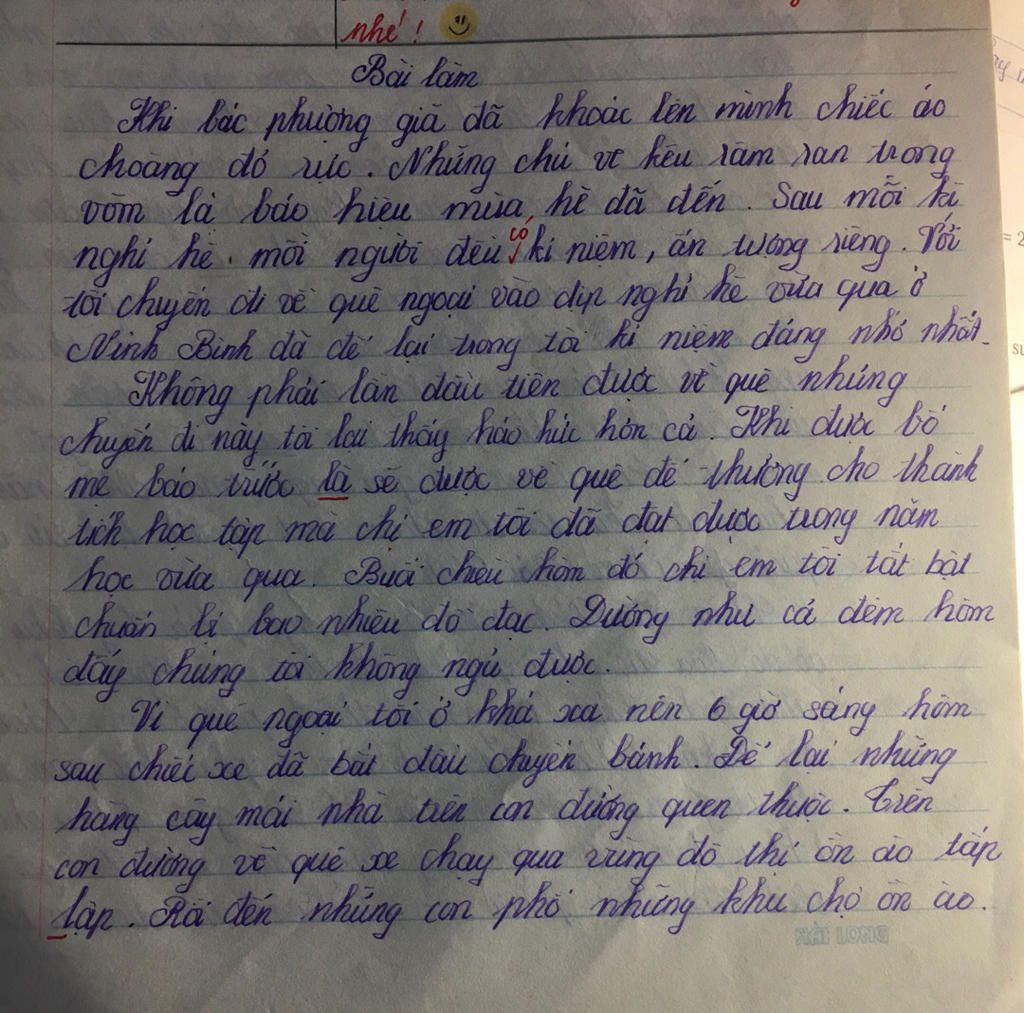 nhé!
Bài làm
Khi bác phượng già đã khoác lên mình chiếc áo
choàng đỏ rực. Những chú ve kêu râm ran trong
vòm lá báo hiệu mùa hè đã đến. Sau mỗi kì
nghỉ hè. mỗi người đều có kỉ niệm, ấn tượng riêng. Với
tôi chuyến đi về quê ngoại vào dịp nghỉ hè vừa qua ở
Ninh Bình đã để lại trong tôi kỉ niệm đáng nhớ nhất.
Không phải lần đầu tiên được về quê nhưng
chuyến đi này tôi lại thấy háo hức hơn cả. Khi được bố
mẹ báo trước là sẽ được về quê để thưởng cho thành
tích học tập mà chị em tôi đã đạt được trong năm
học vừa qua. Buổi chiều hôm đó chị em tôi tất bật
chuẩn bị bao nhiêu đồ đạc. Dường như cả đêm hôm
đấy chúng tôi không ngủ được.
Vì quê ngoại tôi ở khá xa nên 6 giờ sáng hôm
sau chiếc xe đã bắt đầu chuyển bánh. Để lại những
hàng cây mái nhà trên con đường quen thuộc. Trên
con đường về quê xe chạy qua vùng đô thị ồn ào tấp
lập. Rồi đến những con phố những khu chợ ồn ào.
HẢI LONG